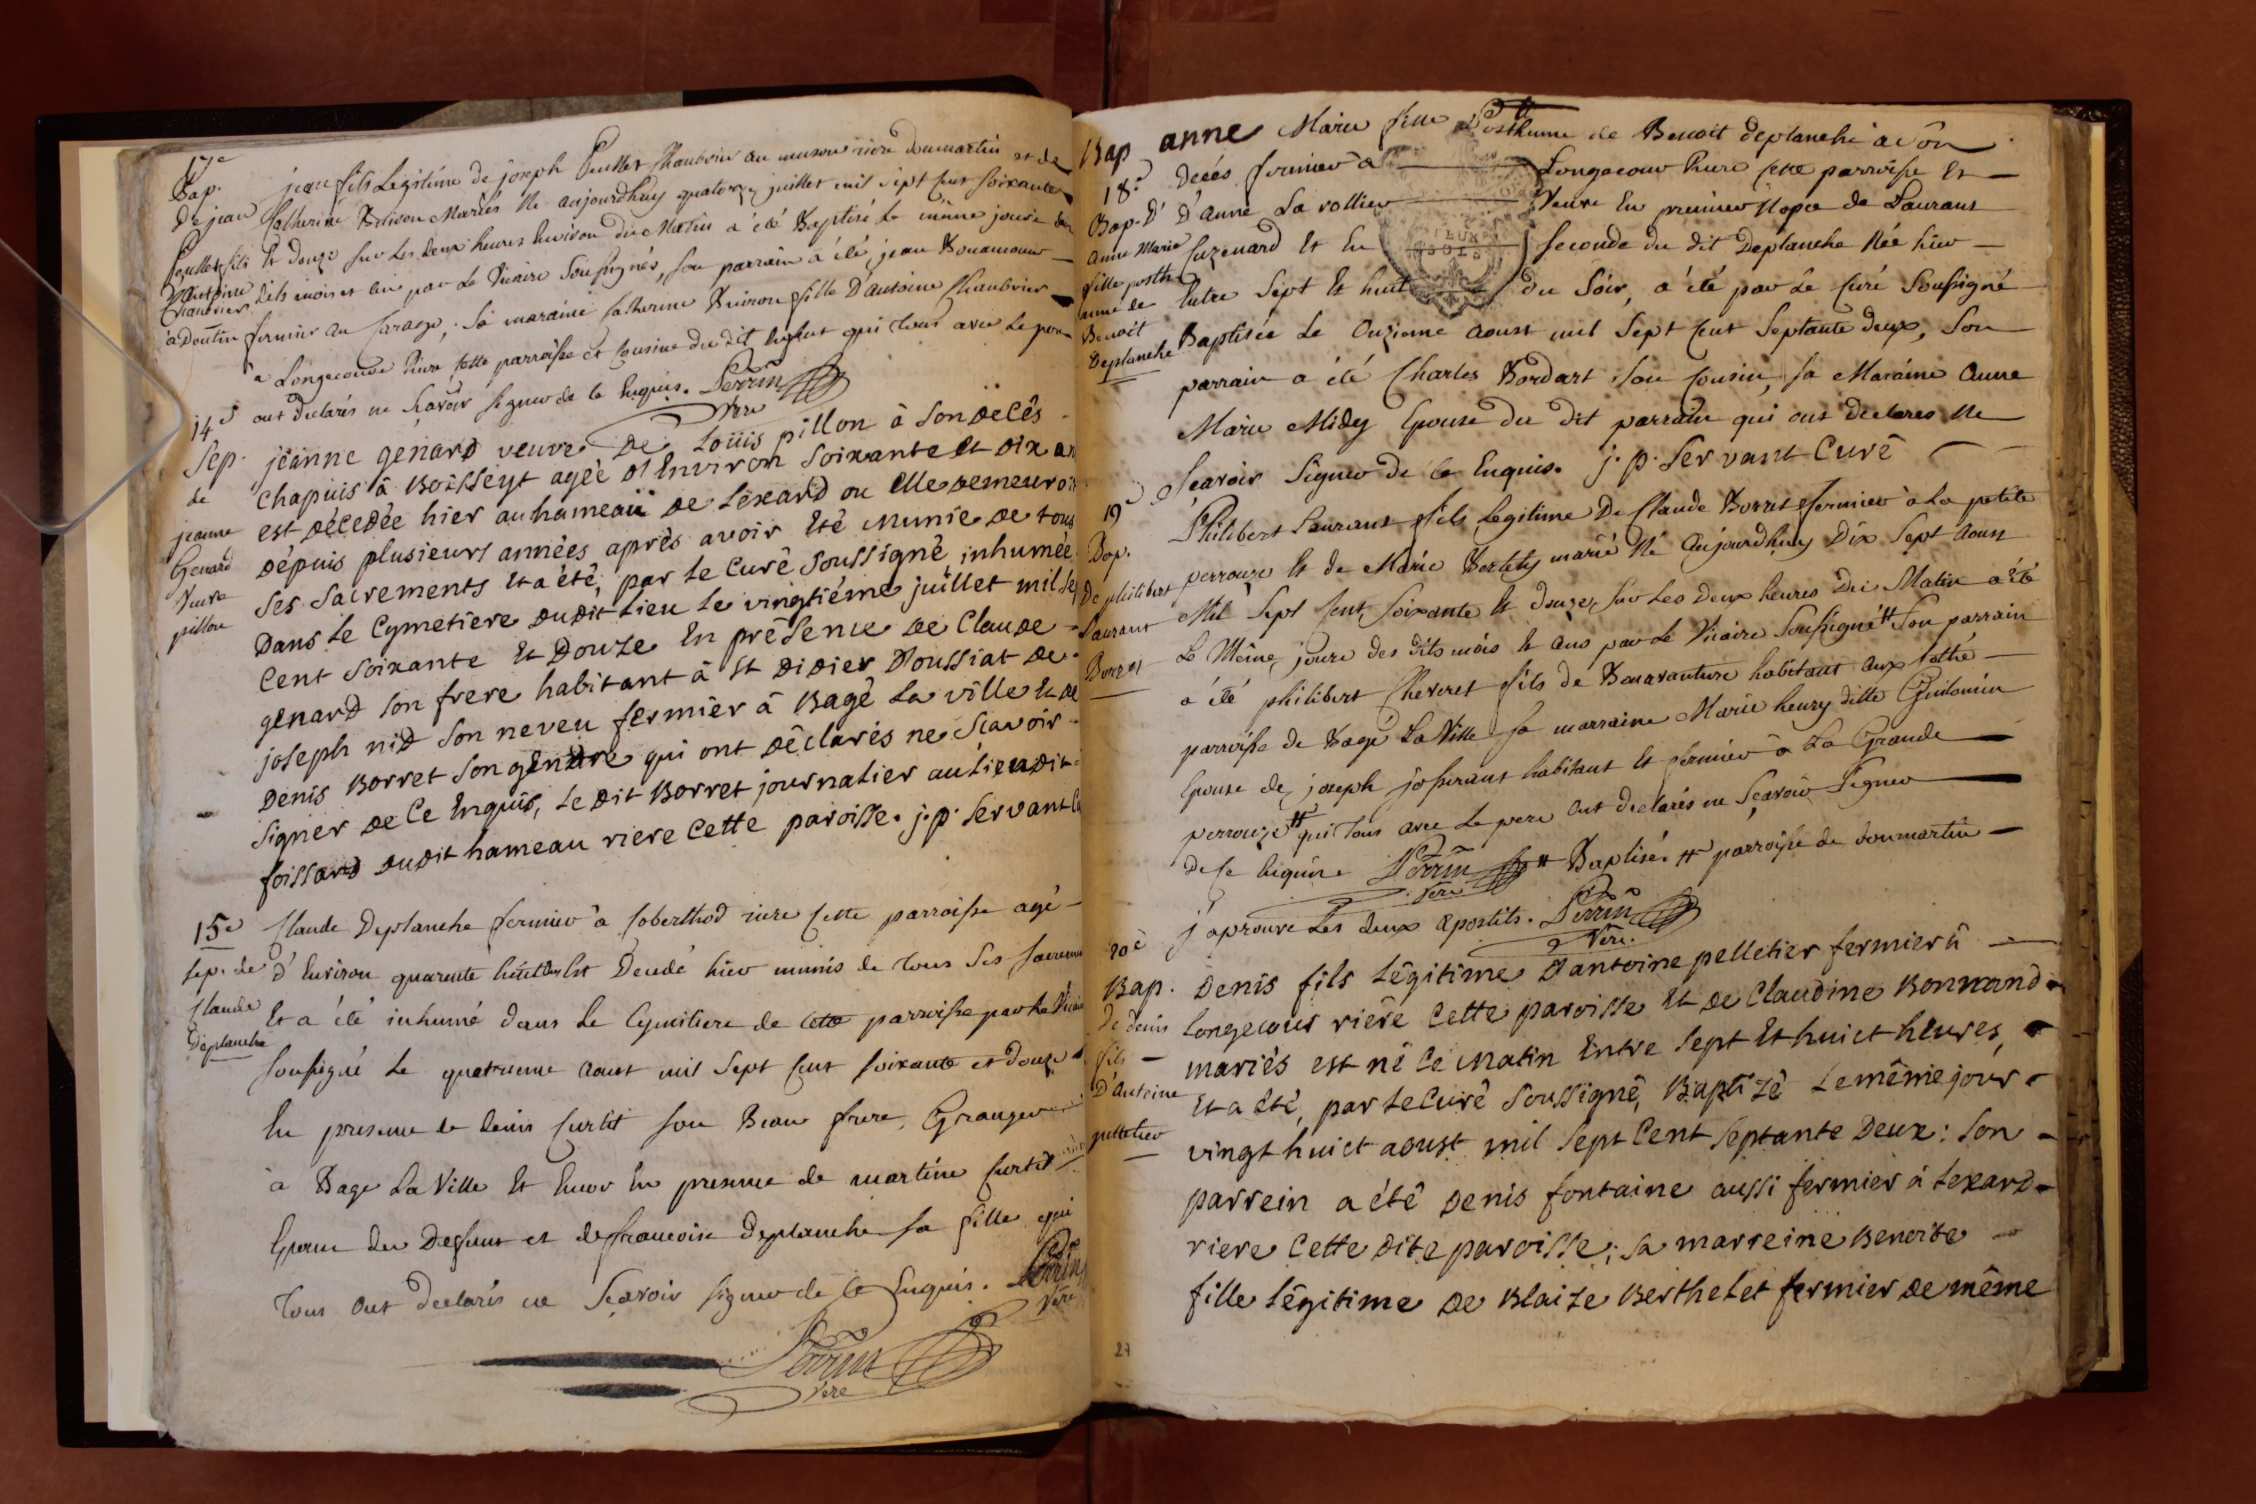 17e
Bap.
De jean
Peullet fils
D'antoine
Chambrier
à Doutin
jean fils Legitime de joseph Peullet Chambrier au rière Dommartin et de
Catherine Buiron Mariés Né aujourdhuy quatorze juillet mil sept cent soixante
Et douze sur Les deux heures Environ du Matin a été Baptisé Le même jour
dits mois et an par Le Vicaire Soussigné, son parrain a été jean Bonamour
fermier au ; Sa maraine Catherine Buiron fille D'antoine Chambrier
à Longecour Rière cette parroisse et cousine du dit Enfant qui tous avec Le pere
ont declarés ne Sçavoir signer de ce Enquis. Perrin
Vere
14e
Sep.
de
jeanne
Genard
Veuve
pillon
jeanne genard veuve de Loüis pillon à son décés
Chapuis à Boisseyt agée d'Environ soixante et dix an
est décédée hier au hameau de Lexard ou Elle demeuroit
dépuis plusieurs années aprês avoir Eté munie de tous
ses sacrements Et a été, par le Curé soussigné inhumée
Dans Le Cymetiere dudit Lieu Le vingtiéme juillet mil sep
Cent soixante Et Douze En présence de Claude
genard son frere habitant à St Didier D'oussiat de
joseph nid son neveu fermiêr à Bagé La ville Et de
Denis Borret son gendre qui ont dêclarés ne scavoir
signer de ce Enquis, Le dit Borret journalier au Lieu dit
foissard dudit hameau riere cette paroisse. j. p. Servant C
15e
Sep. de
Claude
Deplanche
Claude Deplanche fermier à Coberthod riere cette parroisse agé
d'Environ quarente huit Est Decedé hier munis de tous Ses sacremen
Et a été inhumé dans Le Cymitiere de cette parroisse par Le Vicai
soussigné Le quatrieme aoust mil sept cent soixante et douze
En presence de denis Curtit son Beau frere, Granger
à Bage La Ville Et Encor En presence de martine Curtit
Epouse du Defunt et de francoise Deplanche sa fille qui
tous ont declarés ne Sçavoir signer de ce Enquis. Perrin
Vere
Perrin
Vere
Bap
18e
Bap. D'
anne Marie
fille posth
ume de
Benoit
Deplanche
anne Marie fille Posthume de Benoit deplanche a son
Decés fermier à Longecour Riere cette parroisse Et
D'anne La rollier Veuve En premier Nopce de Laurans
Cuzenard Et En seconde du dit Deplanche Née hier
Entre Sept Et huit du Soir, a été par Le Curé Soussigné
Baptisée Le Onzieme aoust mil sept cent Septante deux, Son
parrain a été Charles Bordart son cousin, sa Maraine Anne
Marie Midey Epouse du dit parrain qui ont declares Ne
Scavoir Signer de ce Enquis. j. p. Servant Curé
19e
Bap.
De philibert
Laurant
Borret
Philibert Laurant fils Legitime De Claude Borret fermier à La petite
perrouze Et de Marie Bertety marié Né Aujourdhuy Dix Sept Aoust
Mil Sept Cent soixante Et douze, sur Les Deux heures Du Matin a été
Le Même jour des dits mois Et ans par Le Vicaire Soussigné # Son parrain
a été philibert Cheveret fils de Bonavanture habitant aux
parroisse de Bagé La Ville sa marraine Marie heury ditte Guilomin
Epouse de joseph joserant habitant Et fermier à La Grande
perrouze # qui tous avec Le pere ont declarés ne Sçavoir Signer
de Ce Enquis Perrin # Baptisé. # parroisse de dommartin
Vere
j'aprouve Les deux apostils. Perrin
Vere.
20e
Bap.
De denis
fils
D'antoine
pelletier
Denis fils Légitime D'antoine pelletier fermier à
Longecour riêre cette paroisse Et de Claudine Bonnand
mariés est né ce matin Entre sept Et huict heures,
Et a été, par Le Curé soussigné, Baptizé Le même jour
vingt huict aoust mil sept Cent septante Deux: son
parrein a été Denis fontaine aussi fermier à Lexard
riere cette dite paroisse; sa marreine Benoite
fille Légitime de Blaize Berthelet fermier de même
27